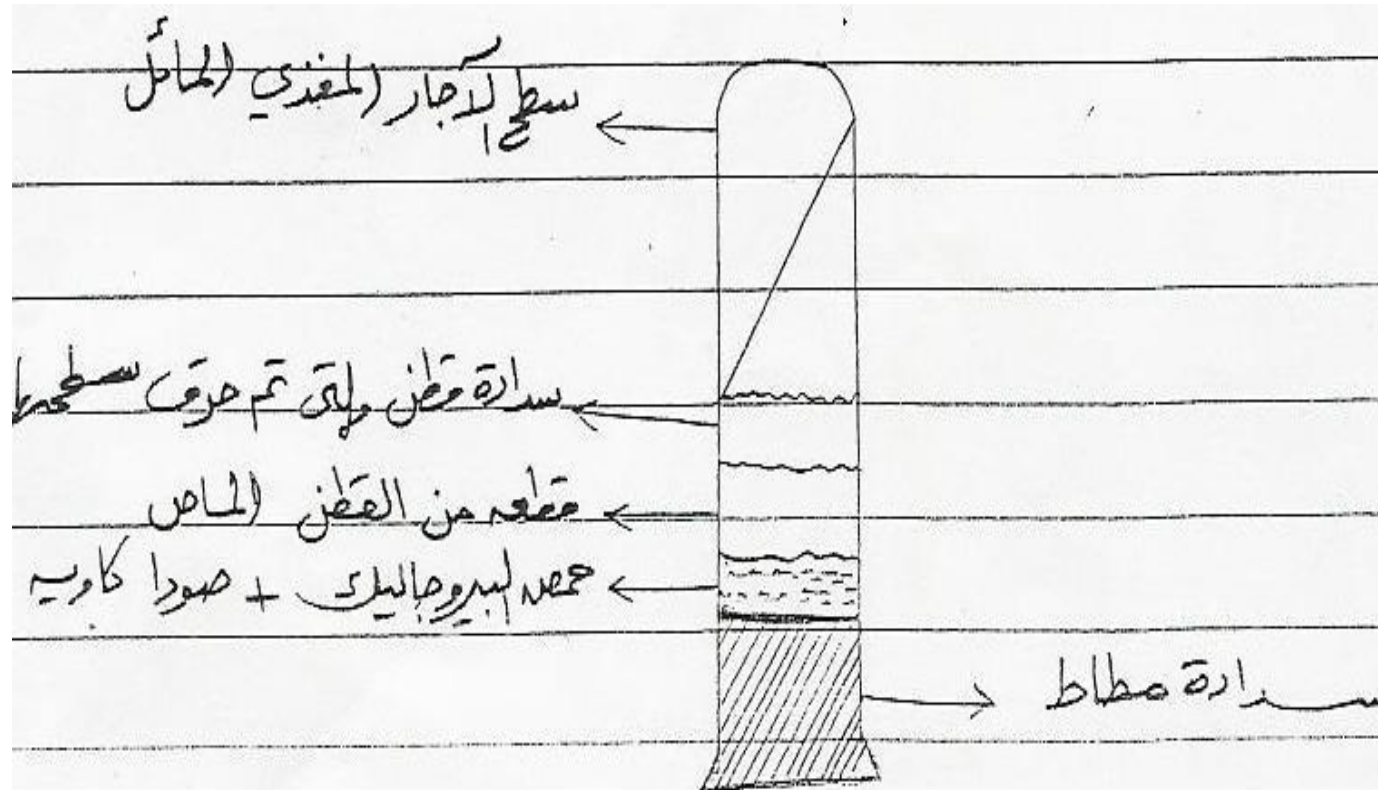 سطح الآجار المغذي المائل
سدادة قطن والتى تم حرق سطحها
قطعه من القطن الماص
حمض البيروجاليك + صودا كاويه
سدادة مطاط